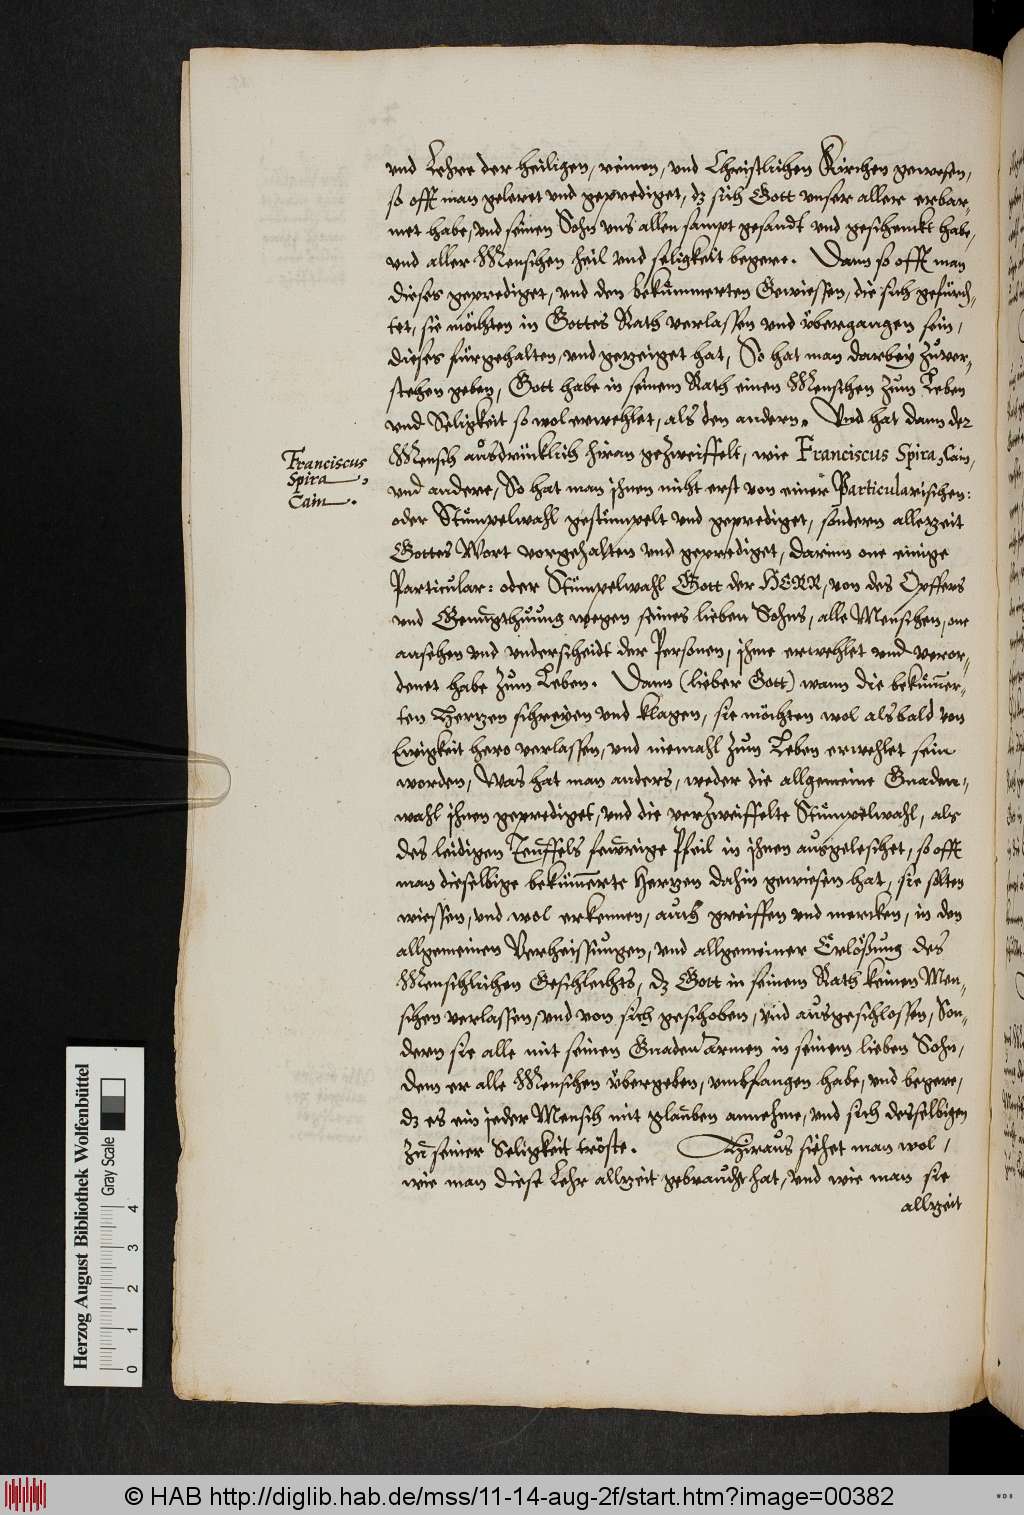 und Lehre der heiligen, reinen, und Christlichen Kirchen gewesen,
so offt man geleret und geprediget, dz sich Gott unser aller erbar-
met habe, und seinen Sohn uns allen sampt gesandt und geschenckt habe,
und aller Menschen heil und seligkeit begere. Dann so offt man
dieses geprediget, und den bekümmerten Gewiessen, die sich gefürch-
tet, sie möchten in Gottes Rath verlassen und übergangen sein,
dieses fürgehalten, und gezeiget hat, So hat man darbey zuver-
stehen geben, Gott habe in seinem Rath einen Menschen zum Leben
und Seligkeit so wol erwehlet, als den andern. Und hat dann der
Mensch ausdrücklich hiran gezweiffelt, wie Franciscus Spira, Cain,
und andere, So hat man ihnen nicht erst von einer Particularischen:
oder Stümpelwahl gestümpelt und geprediget, sondern allezeit
Gottes Wort vorgehalten und geprediget, darinn one einige
Particular: oder Stümpelwahl Gott der HERR, von des Opffers
und Genugthuung wegen seines lieben Sohns, alle Menschen, one
ansehen und underscheidt der Personen, ihme erwehlet und veror-
denet habe zum Leben. Dann (lieber Gott) wann die bekümer-
ten Hertzen schreyen und klagen, sie möchten wol alsbald von
Ewigkeit hero verlassen, und niemahl zum Leben erwehlet sein
worden, Was hat man anders, weder die allgemeine Gnaden-
wahl ihnen geprediget, und die verzweiffelte Stümpelwahl, als
des leidigen Teuffels fewrige Pfeil in ihnen ausgeleschet, so offt
man dieselbige bekümerte Hertzen dahin gewiesen hat, sie solten
wiessen, und wol erkennen, auch greiffen und mercken, in den
allgemeinen Verheissungen, und allgemeiner Erlößung des
Menschlichen Geschlechts, dz Gott in seinem Rath keinen Men-
schen verlassen, und von sich geschoben, und ausgeschlossen, Son-
dern sie alle mit seinen Gnaden armen in seinem lieben Sohn,
dem er alle Menschen übergeben, umbfangen habe, und begere,
dz es ein jeder Mensch mit glauben annehme, und sich desselbigen
zu seiner Seligkeit tröste. Hiraus siehet man wol,
wie man diese Lehr allzeit gebraucht hat, und wie man sie
allzeit
Franciscus
Spira,
Cain.
Herzog August Bibliothek Wolfenbüttel
Gray Scale
0 1 2 3 4
© HAB http://diglib.hab.de/mss/11-14-aug-2f/start.htm?image=00382